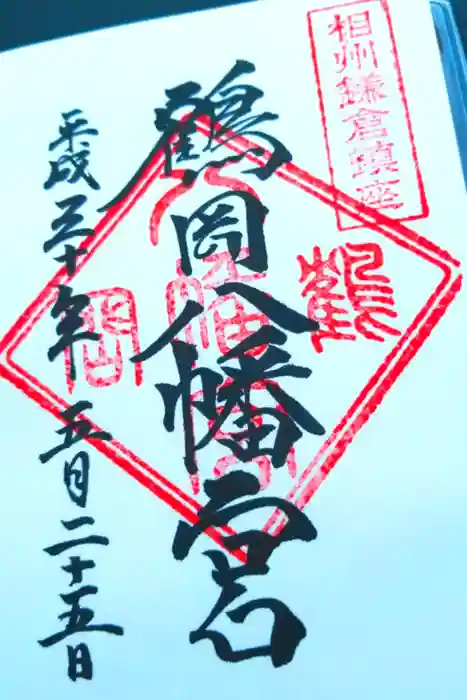 相州鎌倉鎮座
鶴岡八幡宮
平成三十年五月二十五日